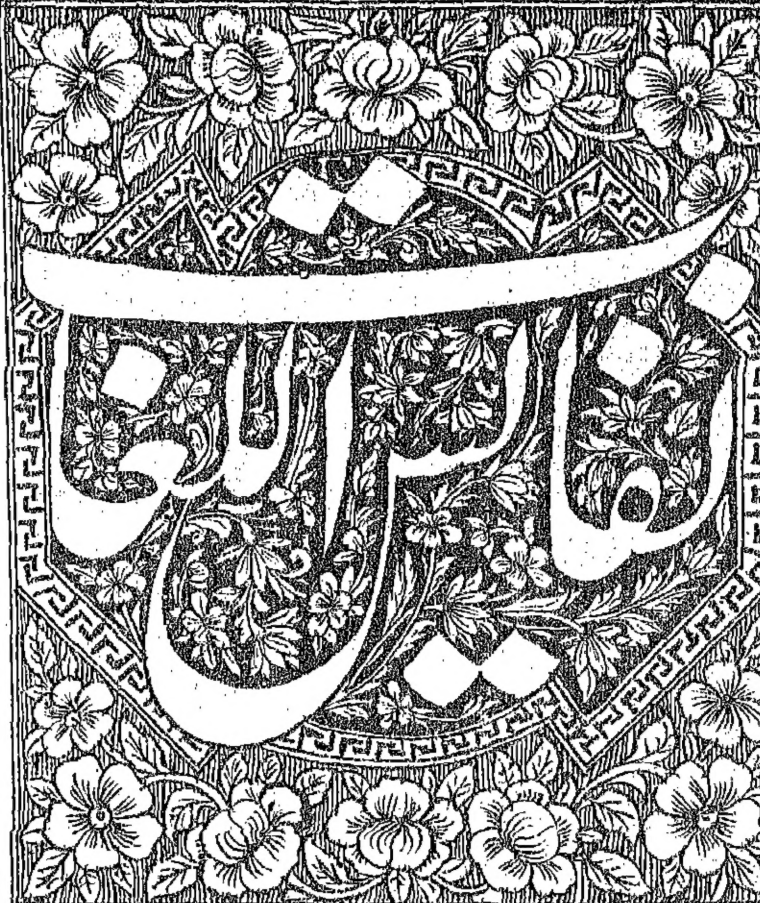 نفایس اللغات